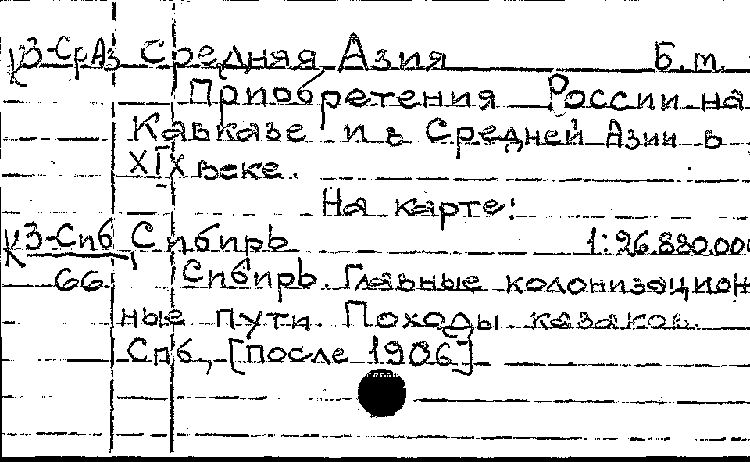 К3-СрАз Средняя Азия Б.м.
Приобретения России на
Кавказе и в Средней Азии в
XIX веке.
На карте:
К3-Спб Спбпрь 1:26.880.000
66 Спбпрь. Главные колонизацион
ные пути. Походы казаков.
Спб., [после 1906]